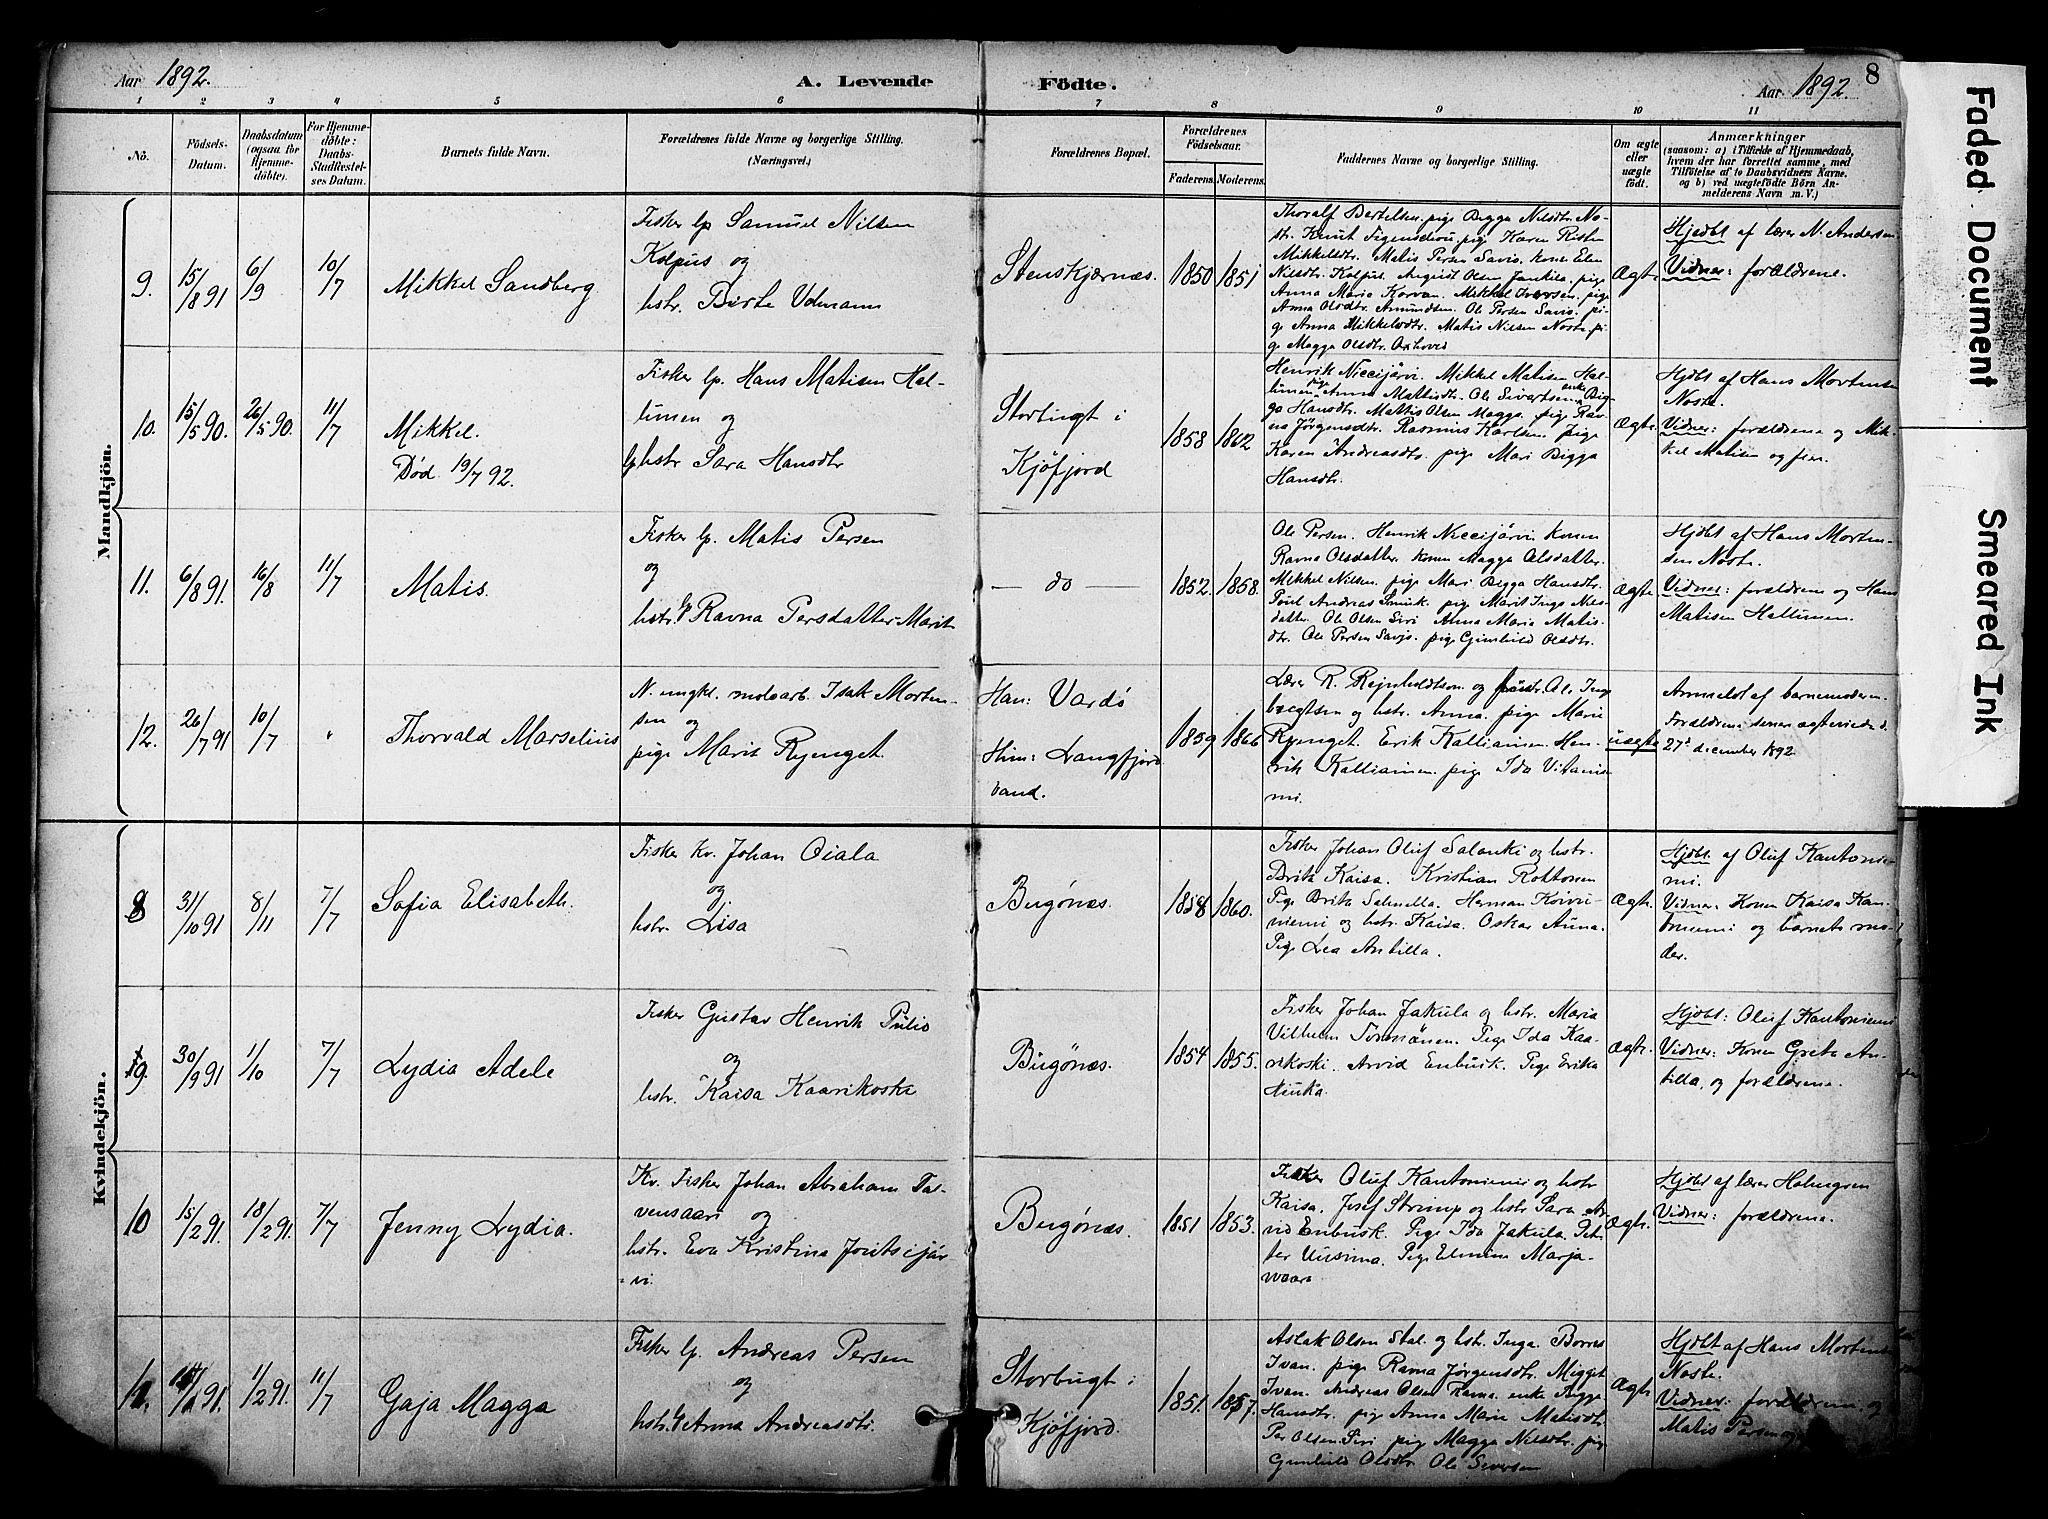 Aar 1892.
A. Levende Födte.
Aar 1892.
8
1 2 3 4 5 6 7 8 9 10 11
No.
Födsels-
Datum.
Daabsdatum
(ogsaa for
Hjemme-
döbte).
For Hjemme-
döbte:
Daabs-
Stadfæstel-
ses Datum.
Barnets fulde Navn.
Forældrenes fulde Navne og borgerlige Stilling.
(Næringsvei.)
Forældrenes Bopæl.
Forældrenes
Födselsaar.
Faderens.
Moderens.
Faddernes Navne og borgerlige Stilling.
Om ægte
eller
uægte
födt.
Anmærkninger
(saasom: a) i Tilfælde af Hjemmedaab,
hvem der har forrettet samme, med
Tilföielse af to Daabsvidners Navne.
og b) ved uægtefödte Börn An-
melderens Navn m. V.)
Mandkjön.
9.
15/8 91
6/9
10/7
Mikkel Sandberg.
Fisker lp Samuel Nilsen
Kolpus og
hstr. Birte Udmann
Stenskjærnæs.
1850
1851
Thoralf Bertelsen. pige Bigga Nilsdtr. No-
ste. Knut Figenschou. pige Karen Risten
Mikkelsdtr. Matis Persen Savio. kone Elen
Nilsdtr. Kolpus. August Olsen Jankila. pige
Anna Maria Korvan. Mikkel Iversen. pige
Anna Olsdtr. Amundsen. Ole Persen Savio. pi-
ge Anna Mikkelsdtr. Matis Nilsen Noste. pi-
ge Magga Olsdtr.
Ægte.
Hjdbt af lærer N. Andersen
Vidner: forældrene.
10.
15/5 90.
26/5 90.
11/7
Mikkel.
Død 19/7 92.
Fisker lp. Hans Matisen Hal-
linen og
lp hstr Sara Hansdtr
Storbugt i
Kjöfjord
1858
1862
Henrik Niccijärvi. Mikkel Matisen Hal-
linen. pige Anna Mattisdtr. Ole Sivertsen. enke Big-
ga Hansdtr. Mattis Olsen Magga. pige Rav-
na Jörgensdtr. Rasmus Karlsen. pige
Karen Andreasdtr. pige Mari Bigga
Hansdtr.
Ægte.
Hjdbt af Hans Mortensen
Noste.
Vidner: forældrene og Mik-
kel Matisen og fler.
11.
6/8 91.
16/8
11/7
Matis.
Fisker lp. Matis Persen
og
hstr. lp Ravna Persdatter Marit
— do —
1852.
1858.
Ole Persen. Henrik Niccijärvi. konen
Ravna Olsdatter. konen Magga Olsdatter.
Mikkel Nilsen. pige Mari Bigga Hansdtr.
Poul Andreas Smuk. pige Marit Inga Nils-
datter. Ole Olsen Siri Anna Maria Matis-
dtr. Ole Persen Savjo. pige Gunhild Olsdtr.
Ægte.
Hjdbt af Hans Morten-
sen Noste.
Vidner: forældrene og Hans
Matisen Hallinen.
12.
26/7 91
10/7
"
Thorvald Marselius
N. ungkl. moloarb. Isak Morten-
sen og
pige Marit Ryenget.
Han: Vardö
Hun: Langfjord
vand.
1859
1866
Lærer R. Rejnholdtsen og hstr. Ole Inge
bregtsen og hstr. Anna. pige Marie
Ryenget. Erik Kalliainen. Hen-
rik Kalliainen. pige Ida Vitanie
mi.
uægte
Anmeldt af barnemoderen.
Forældrene senere ægteviede d.
27d december 1892
Kvindekjön.
8
31/10 91
8/11
7/7
Sofia Elisabeth.
Fisker Kv. Johan Oiala
og
hstr. Lisa
Bugönæs.
1858
1860.
Fisker Johan Oluf Salanki og hstr.
Brita Kaisa. Kristian Rottonen
Pige Brita Salmella. Herman Koivu-
niemi og hstr. Kaisa. Oskar Auna.
Pige Lea Antilla.
Ægte.
Hjdbt. af Oluf Kantonie-
mi.
Vidner: Konen Kaisa Kan-
toniemi og barnets mo-
der.
9.
30/9 91
1/10
7/7
Lydia Adele
Fisker Gustav Henrik Pulio
og
hstr. Kaisa Kaarikoski
Bugönæs.
1854
1855.
Fisker Johan Jakula og hstr. Maria
Vilhelm Tornönen. Pige Ida Kaa-
rikoski. Arvid Enbusk. Pige Erika
Niuka.
Ægte.
Hjdbt: Oluf Kantoniemi
Vidner: Konen Greta An-
tilla, og forældrene.
10
15/2 91.
18/2 91.
7/7
Jenny Lydia.
Kv. Fisker Johan Abraham Tai-
vensaari og
hstr. Eva Kristina Jontsijär-
vi.
Bugönæs.
1851
1853.
Fisker Oluf Kantoniemi og hstr
Kaisa. Josef Strimp og hstr Sara Ar-
vid Enbusk. Pige Ida Jakula. Pet-
ter Uusima. Pige Elmine Marja-
waara
Ægte.
Hjdbt af lærer Holmgren
Vidner: forældrene.
11.
1/2 91.
11/7
Gaja Magga
Fisker lp. Andreas Persen
og
hstr. lp Anna Andreasdtr.
Storbugt i
Kjöfjord.
1851.
1857.
Aslak Olsen Stal. og hstr. Inga Borres
Ivan. pige Ravna Jörgensdtr. Migget
Ivan. Andreas Olsen Ravna. enke Bigga
Hansdtr. pige Anna Marie Matisdtr
Per Olsen Siri pige Magga Nilsdtr. pige
Gunhild Olsdtr Ole Sivertsen
Ægte.
Hjdbt af Hans Mortensen
Noste.
Vidner: forældrene, og
Matis Persen og
Faded Document
Smeared Ink